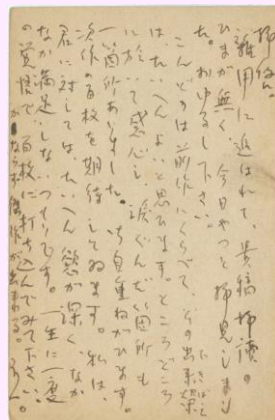 拝復。
雑用に追はれて、貴稿拝讀の
ひまが無く、今日やつと拝見しまし
た。おゆるし下さい。
こんどのは前作にくらべて、その出来栄
は、たいへんよいと思ひます。ところどころ
に於いて感心し、涙ぐんだ箇所も
一箇所ありました。御自重ねがひます。
次作の百枚を期待してゐます。私は、
君に対しては、たいへん慾が深く、なか
なか満足しないつもりです。一生に一度
の覚悟で、百枚に打ち込んでみて下さい。
かならず傑作が出来る。